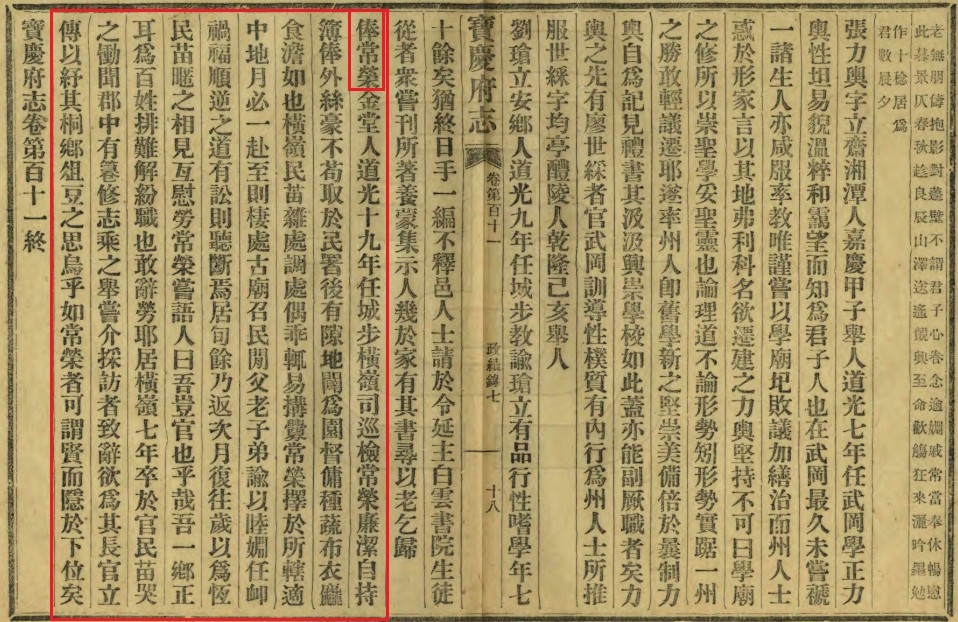 老無朋儔抱影對蓬壁不謂君子心眷念逾婣戚常當奉休暢慰
此暮景仄春秋趁良辰山澤迄遙觀興至命歡觴狂來灑吟勉
作十稔居為
君數晨夕
張力輿字立齋湘潭人嘉慶甲子舉人道光七年任武岡學正力
輿性坦易貌溫粹和靄望而知為君子人也在武岡最久未嘗褫
一諸生人亦咸服率教唯謹嘗以學廟圮敗議加繕治而州人士
惑於形家言以其地弗利科名欲遷建之力輿堅持不可曰學廟
之修所以崇聖學妥聖靈也論理道不論形勢矧形勢實踞一州
之勝敢輕議遷耶遂率州人卽舊學新之堅崇美備倍於曩制力
輿自為記見禮書其汲汲興崇學校如此蓋亦能副厥職者矣力
輿之先有廖世綵者官武岡訓導性樸質有內行為州人士所推
服世綵字均亭醴陵人乾隆己亥舉人
寶慶府志
卷第百十一
政績錄七
十八
劉瑲立安鄉人道光九年任城步教諭瑲立有品行性嗜學年七
十餘矣猶終日手一編不釋邑人士請於令延主白雲書院生徒
從者衆嘗刊所著養蒙集示人幾於家有其書尋以老乞歸
俸常榮金堂人道光十九年任城步橫嶺司巡檢常榮廉潔自持
簿俸外絲豪不苟取於民署後有隙地闢為園督傭種蔬布衣麤
食澹如也橫嶺民苗雜處調處偶乖輒易搆釁常榮擇於所轄適
中地月必一赴至則棲處古廟召民閒父老子弟諭以睦婣任卹
禍福順逆之道有訟則聽斷焉居旬餘乃返次月復往歲以為恆
民苗暱之相見互慰勞常榮嘗語人曰吾豈官也乎哉吾一鄉正
耳為百姓排難解紛職也敢辭勞耶居橫嶺七年卒於官民苗哭
之慟聞郡中有籑修志乘之舉嘗介採訪者致辭欲為其長官立
傳以紓其桐鄉俎豆之思烏乎如常榮者可謂賢而隱於下位矣
寶慶府志卷第百十一終